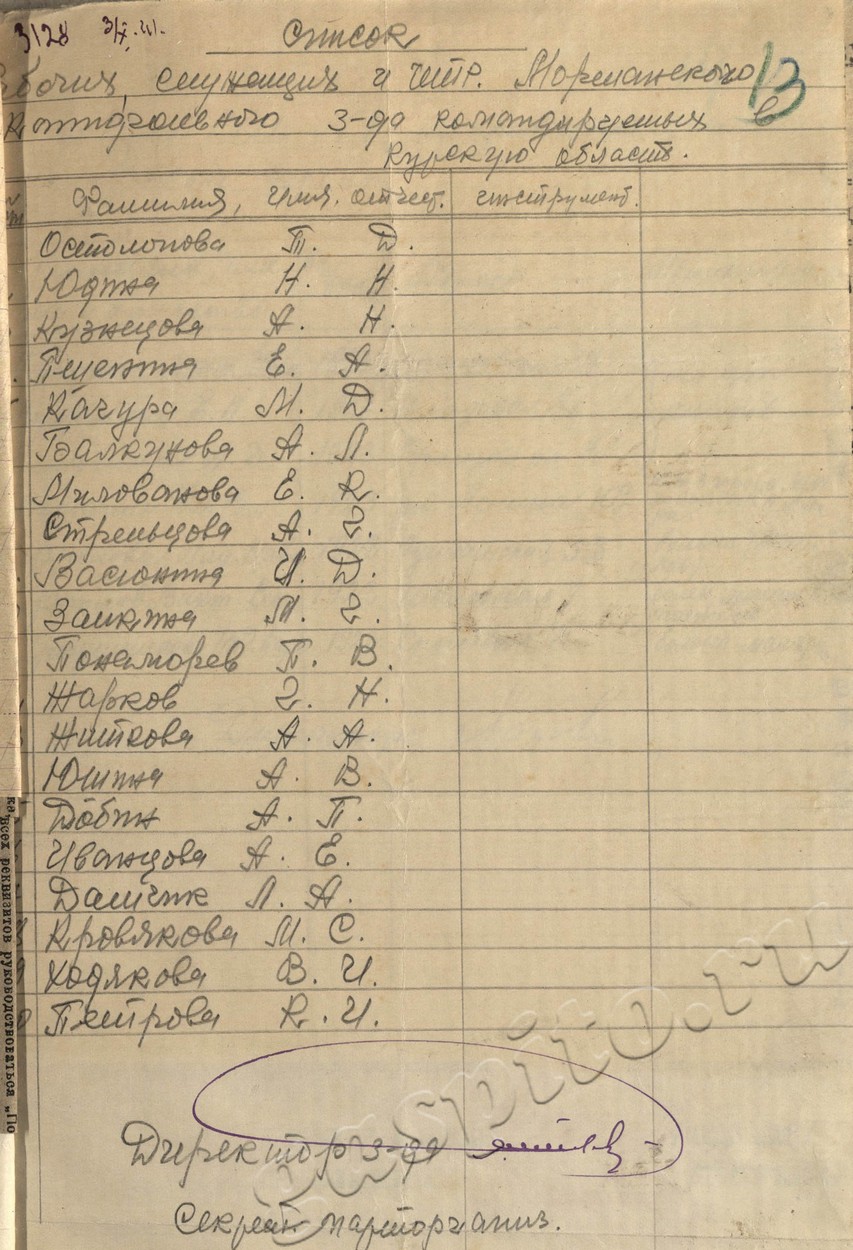 3128 3/X.41.
13
Список
рабочих, служащих и ИТР. Моршанского
Каттонального з-да командируемых в
Курскую область.
Фамилия, Имя. отчест. инструмент.
Остолопова Т. Д.
Юдина Н. Н.
Кузнецова А. Н.
Е. А.
Качура М. Д.
Балкунова А. Л.
Милованова Е. К.
Стрельцова А. Г.
Васюнина И. Д.
Заикина М. Г.
Понаморев П. В.
Жарков Г. Н.
Житкова А. А.
Юшина А. В.
Добин А. П.
Иванцова А. Е.
Л. А.
Кровякова М. С.
Ходякова В. И.
Петрова К. И.
Директор з-да
Секрет парторганиз.
всех реквизитов руководствоваться „По
gaspito.ru